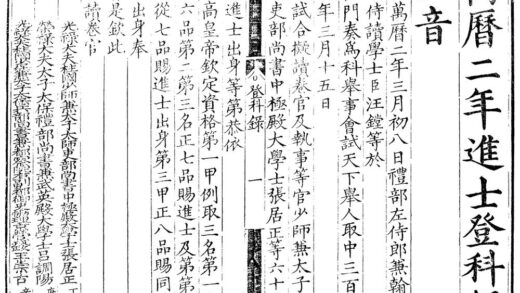 曆二年進士登科
音
萬曆二年三月初八日禮部左侍郎兼翰
侍讀學士臣汪鏜等於
門奏爲科舉事會試天下舉人取中三百
年三月十五日
試合擬讀卷官及執事等官少師兼太子
吏部尚書中極殿大學士張居正等六十
登科錄 一
進士出身等第恭依
高皇帝欽定資格第一甲例取三名第一
六品第二第三名正七品賜進士及第第
從七品賜進士出身第三甲正八品賜同
士出身奉
是欽此
讀卷官
光祿大夫柱國少師兼太子太師吏部尚書中極殿大學士張居正
榮祿大夫太子太保禮部尚書兼武英殿大學士呂調陽